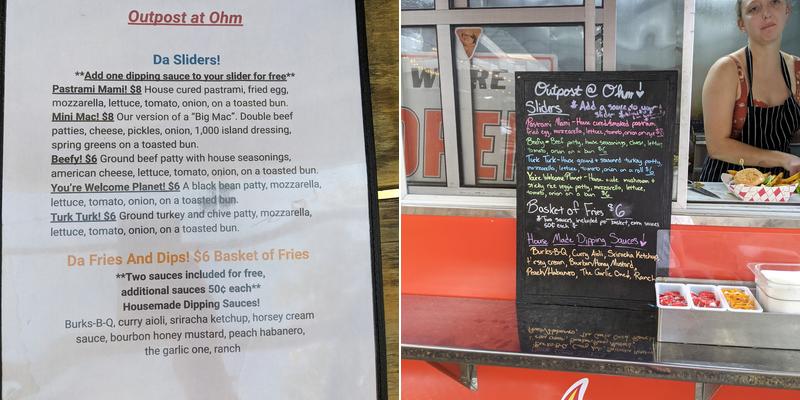 Outpost at Ohm
Da Sliders!
**Add one dipping sauce to your slider for free**
Pastrami Mami! $8 House cured pastrami, fried egg,
mozzarella, lettuce, tomato, onion, on a toasted bun.
Mini Mac! $8 Our version of a "Big Mac". Double beef
patties, cheese, pickles, onion, 1,000 island dressing,
spring greens on a toasted bun.
Beefy! $6 Ground beef patty with house seasonings,
american cheese, lettuce, tomato, onion, on a toasted bun.
You're Welcome Planet! $6 A black bean patty, mozzarella,
lettuce, tomato, onion, on a toasted bun.
Turk Turk! $6 Ground turkey and chive patty, mozzarella,
lettuce, tomato, onion, on a toasted bun.
Da Fries And Dips! $6 Basket of Fries
**Two sauces included for free,
additional sauces 50¢ each**
Housemade Dipping Sauces!
Burks-B-Q, curry aioli, sriracha ketchup, horsey cream
sauce, bourbon honey mustard, peach habanero,
the garlic one, ranch
WE'RE
OPEN
Outpost @ Ohm
Sliders
* Add a sauce to your
slider
Pastrami Mami - House cured/smoked pastrami,
fried egg, mozzarella, lettuce, tomato, onion
Beefy - Beef patty, house seasonings, cheese, lettuce,
tomato, onion on a bun $6
Turk Turk - House ground & seasoned turkey patty,
mozzarella, lettuce, tomato, onion on a roll $6
You're Welcome Planet - House made mushroom &
sticky rice veggie patty, mozzarella, lettuce,
tomato, onion on a bun $6
Basket of Fries $6
* Two sauces, included per basket, extra sauces
50¢ each
House Made Dipping Sauces
Burks-B-Q, Curry Aioli, Sriracha Ketchup,
Horsey cream, Bourbon/Honey Mustard,
Peach/Habanero, The Garlic One, Ranch